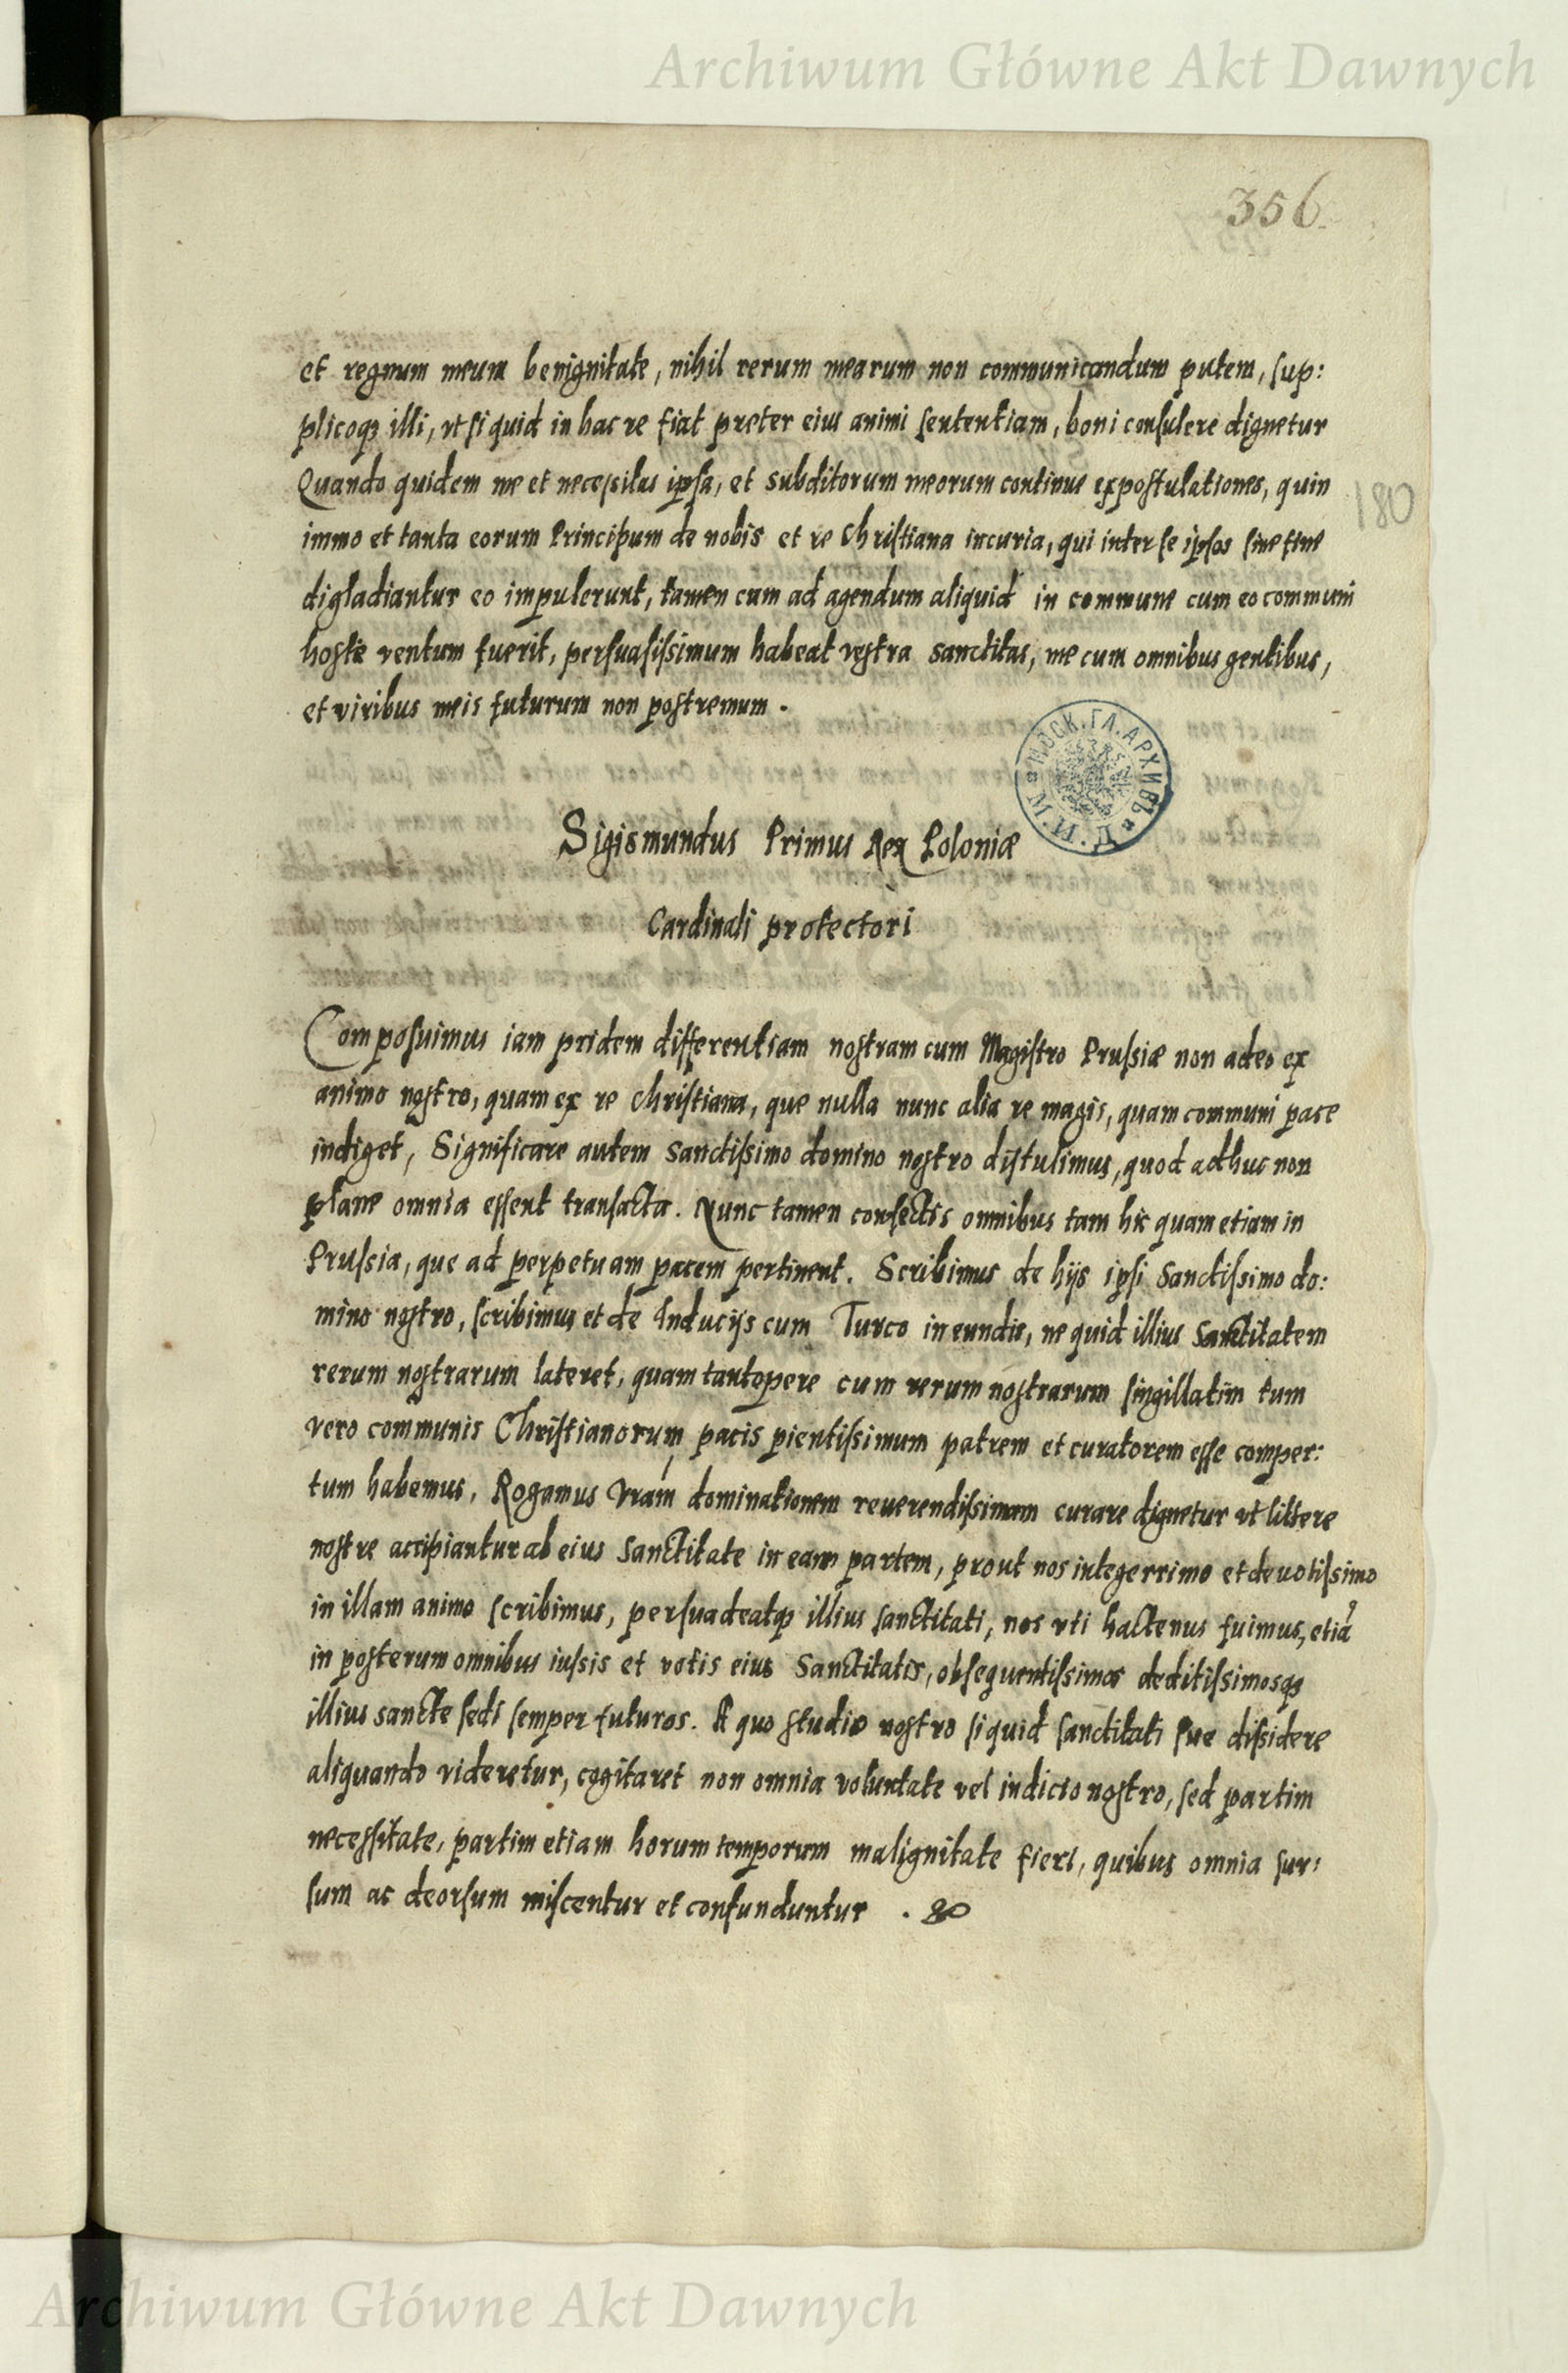 Archiwum Główne Akt Dawnych
356
et regnum meum benignitate, nihil rerum mearum non communicandum putem, sup:
plicoqꝫ illi, vt si quid in hac re fiat preter eius animi sententiam, boni consulere dignetur
Quando quidem me et necessitas ipsa, et subditorum meorum continue expostulationes, quin
180
immo et tanta eorum Principum de nobis et re Christiana incuria, qui inter se ipsos sine fine
digladiantur eo impulerunt, tamen cum ad agendum aliquid in commune cum eo communi
hoste ventum fuerit, persuasissimum habeat vestra sanctitas, me cum omnibus gentibus,
et viribus meis futurum non postremum.
МОСК. ГЛ. АРХИВЪ М. И. Д.
Sigismundus Primus Rex Poloniæ
Cardinali protectori
Composuimus iam pridem differentiam nostram cum Magistro Prussiæ non adeo ex
animo nostro, quam ex re Christiana, que nulla nunc alia re magis, quam communi pace
indiget, Significare autem Sanctissimo domino nostro distulimus, quod adhuc non
plane omnia essent transacta. Nunc tamen confectis omnibus tam hic quam etiam in
Prussia, que ad perpetuam pacem pertinent. Scribimus de hijs ipsi Sanctissimo do:
mino nostro, scribimus et de Inducijs cum Turco ineundis, ne quid illius Sanctitatem
rerum nostrarum lateret, quam tantopere cum rerum nostrarum singillatim tum
vero communis Christianorum pacis pientissimum patrem et curatorem esse comper:
tum habemus. Rogamus Vram dominationem reuerendissimam curare dignetur vt littere
nostre accipiantur ab eius Sanctitate in eam partem, prout nos integerrimo et deuotissimo
in illam animo scribimus, persuadeatqꝫ illius sanctitati, nos vti hactenus fuimus, etiã
in posterum omnibus iussis et votis eius Sanctitatis, obsequentissimos deditissimosqꝫ
illius sancte sedi semper futuros. A quo studio nostro si quid sanctitati sue dissidere
aliquando videretur, cogitaret non omnia voluntate vel indicio nostro, sed partim
necessitate, partim etiam horum temporum malignitate fieri, quibus omnia sur:
sum ac deorsum miscentur et confunduntur.
Archiwum Główne Akt Dawnych